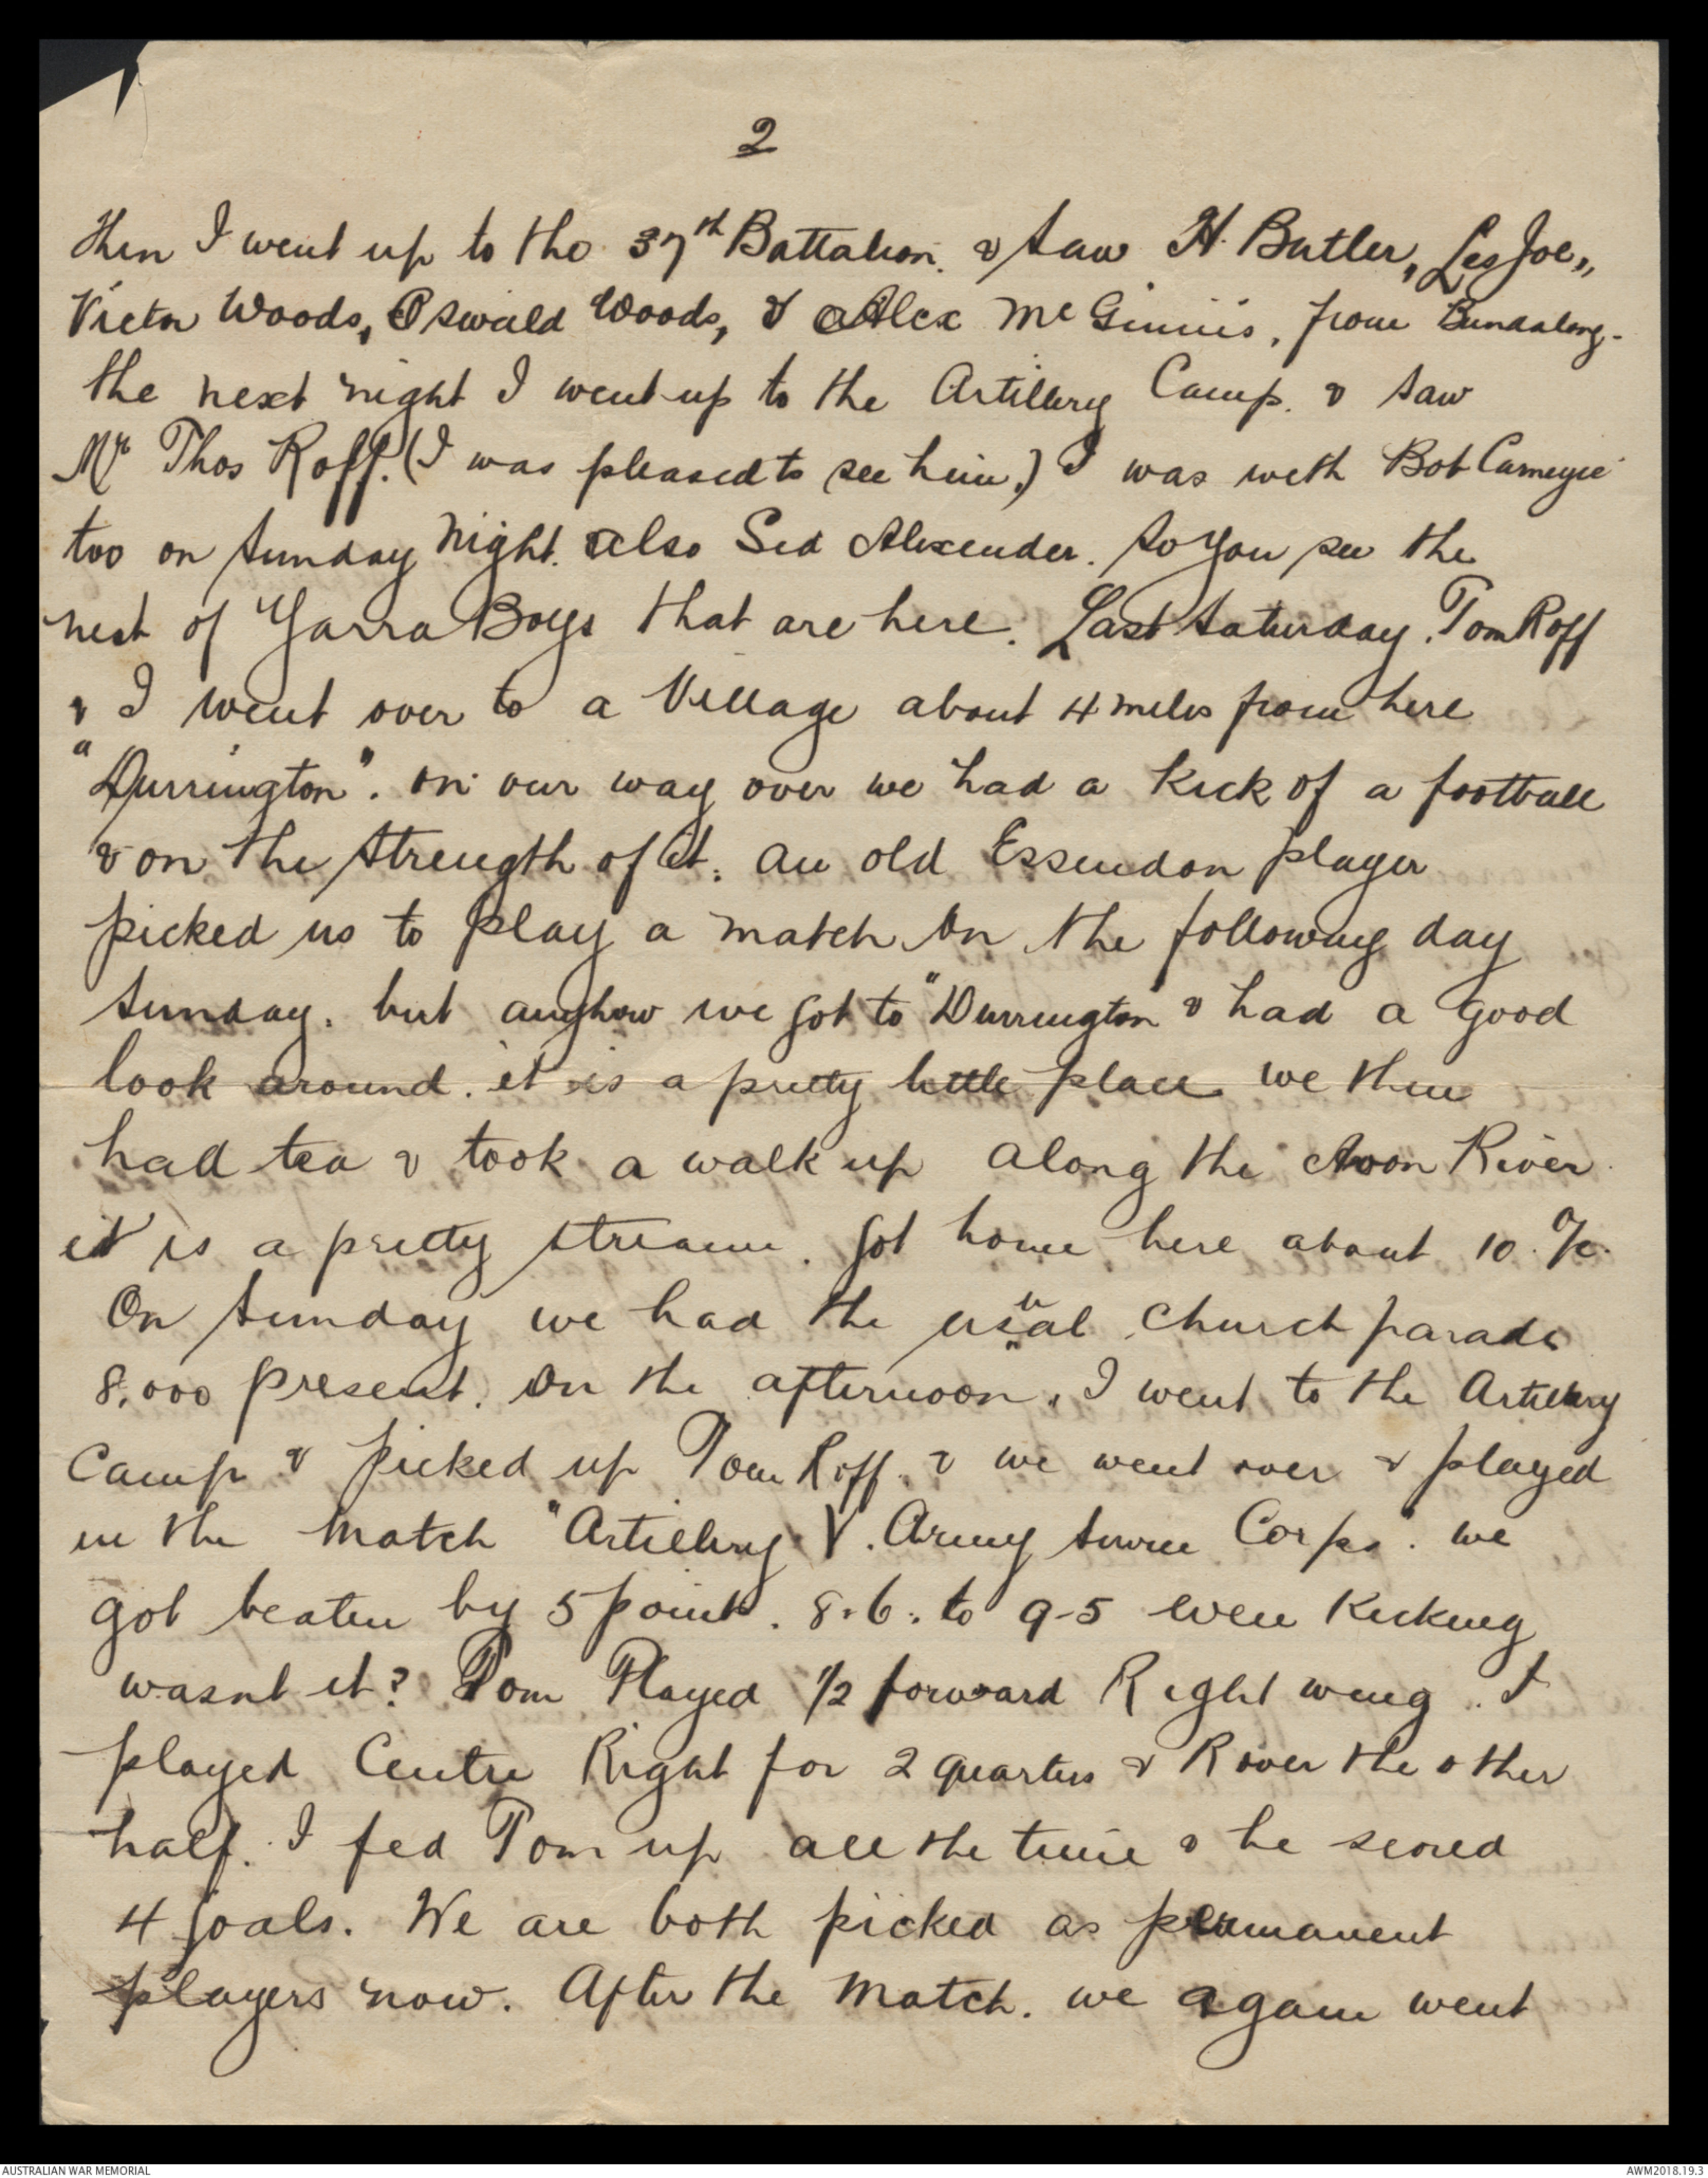 2
then I went up to the 37th Battalion. & saw H. Butler, Les Joe,,
Victor Woods, Oswald Woods, & Alex McGinnis, from Bundalong.
the next night I went up to the Artillery Camp. & saw
Mr Thos Roff. (I was pleased to see him.) I was with Bob Carnegie
too on Sunday Night. also Sid Alexender. So you see the
nest of Yarra Boys that are here. Last Saturday. Tom Roff
& I went over to a Village about 4 miles from here
"Durrington". on our way over we had a kick of a football
& on the strength of it. an old Essendon player
picked us to play a match on the following day
Sunday. but anyhow we got to "Durrington" & had a good
look around. it is a pretty little place we then
had tea & took a walk up along the Avon River.
it is a pretty stream. got home here about 10. O/c.
On Sunday we had the usual church parade
8,000 present. On the afternoon. I went to the Artillery
Camp & picked up Tom Roff. & we went over & played
in the match "Artillery V. Army Service Corps". we
got beaten by 5 points. 8-6. to 9-5 even kicking
wasnt it? Tom Played 1/2 forward Right wing. I
played Centre Right for 2 quarters & Rover the other
half. I fed Tom up all the time & he scored
4 goals. We are both picked as permanent
players now. After the match. we again went
AUSTRALIAN WAR MEMORIAL
AWM2018.19.3